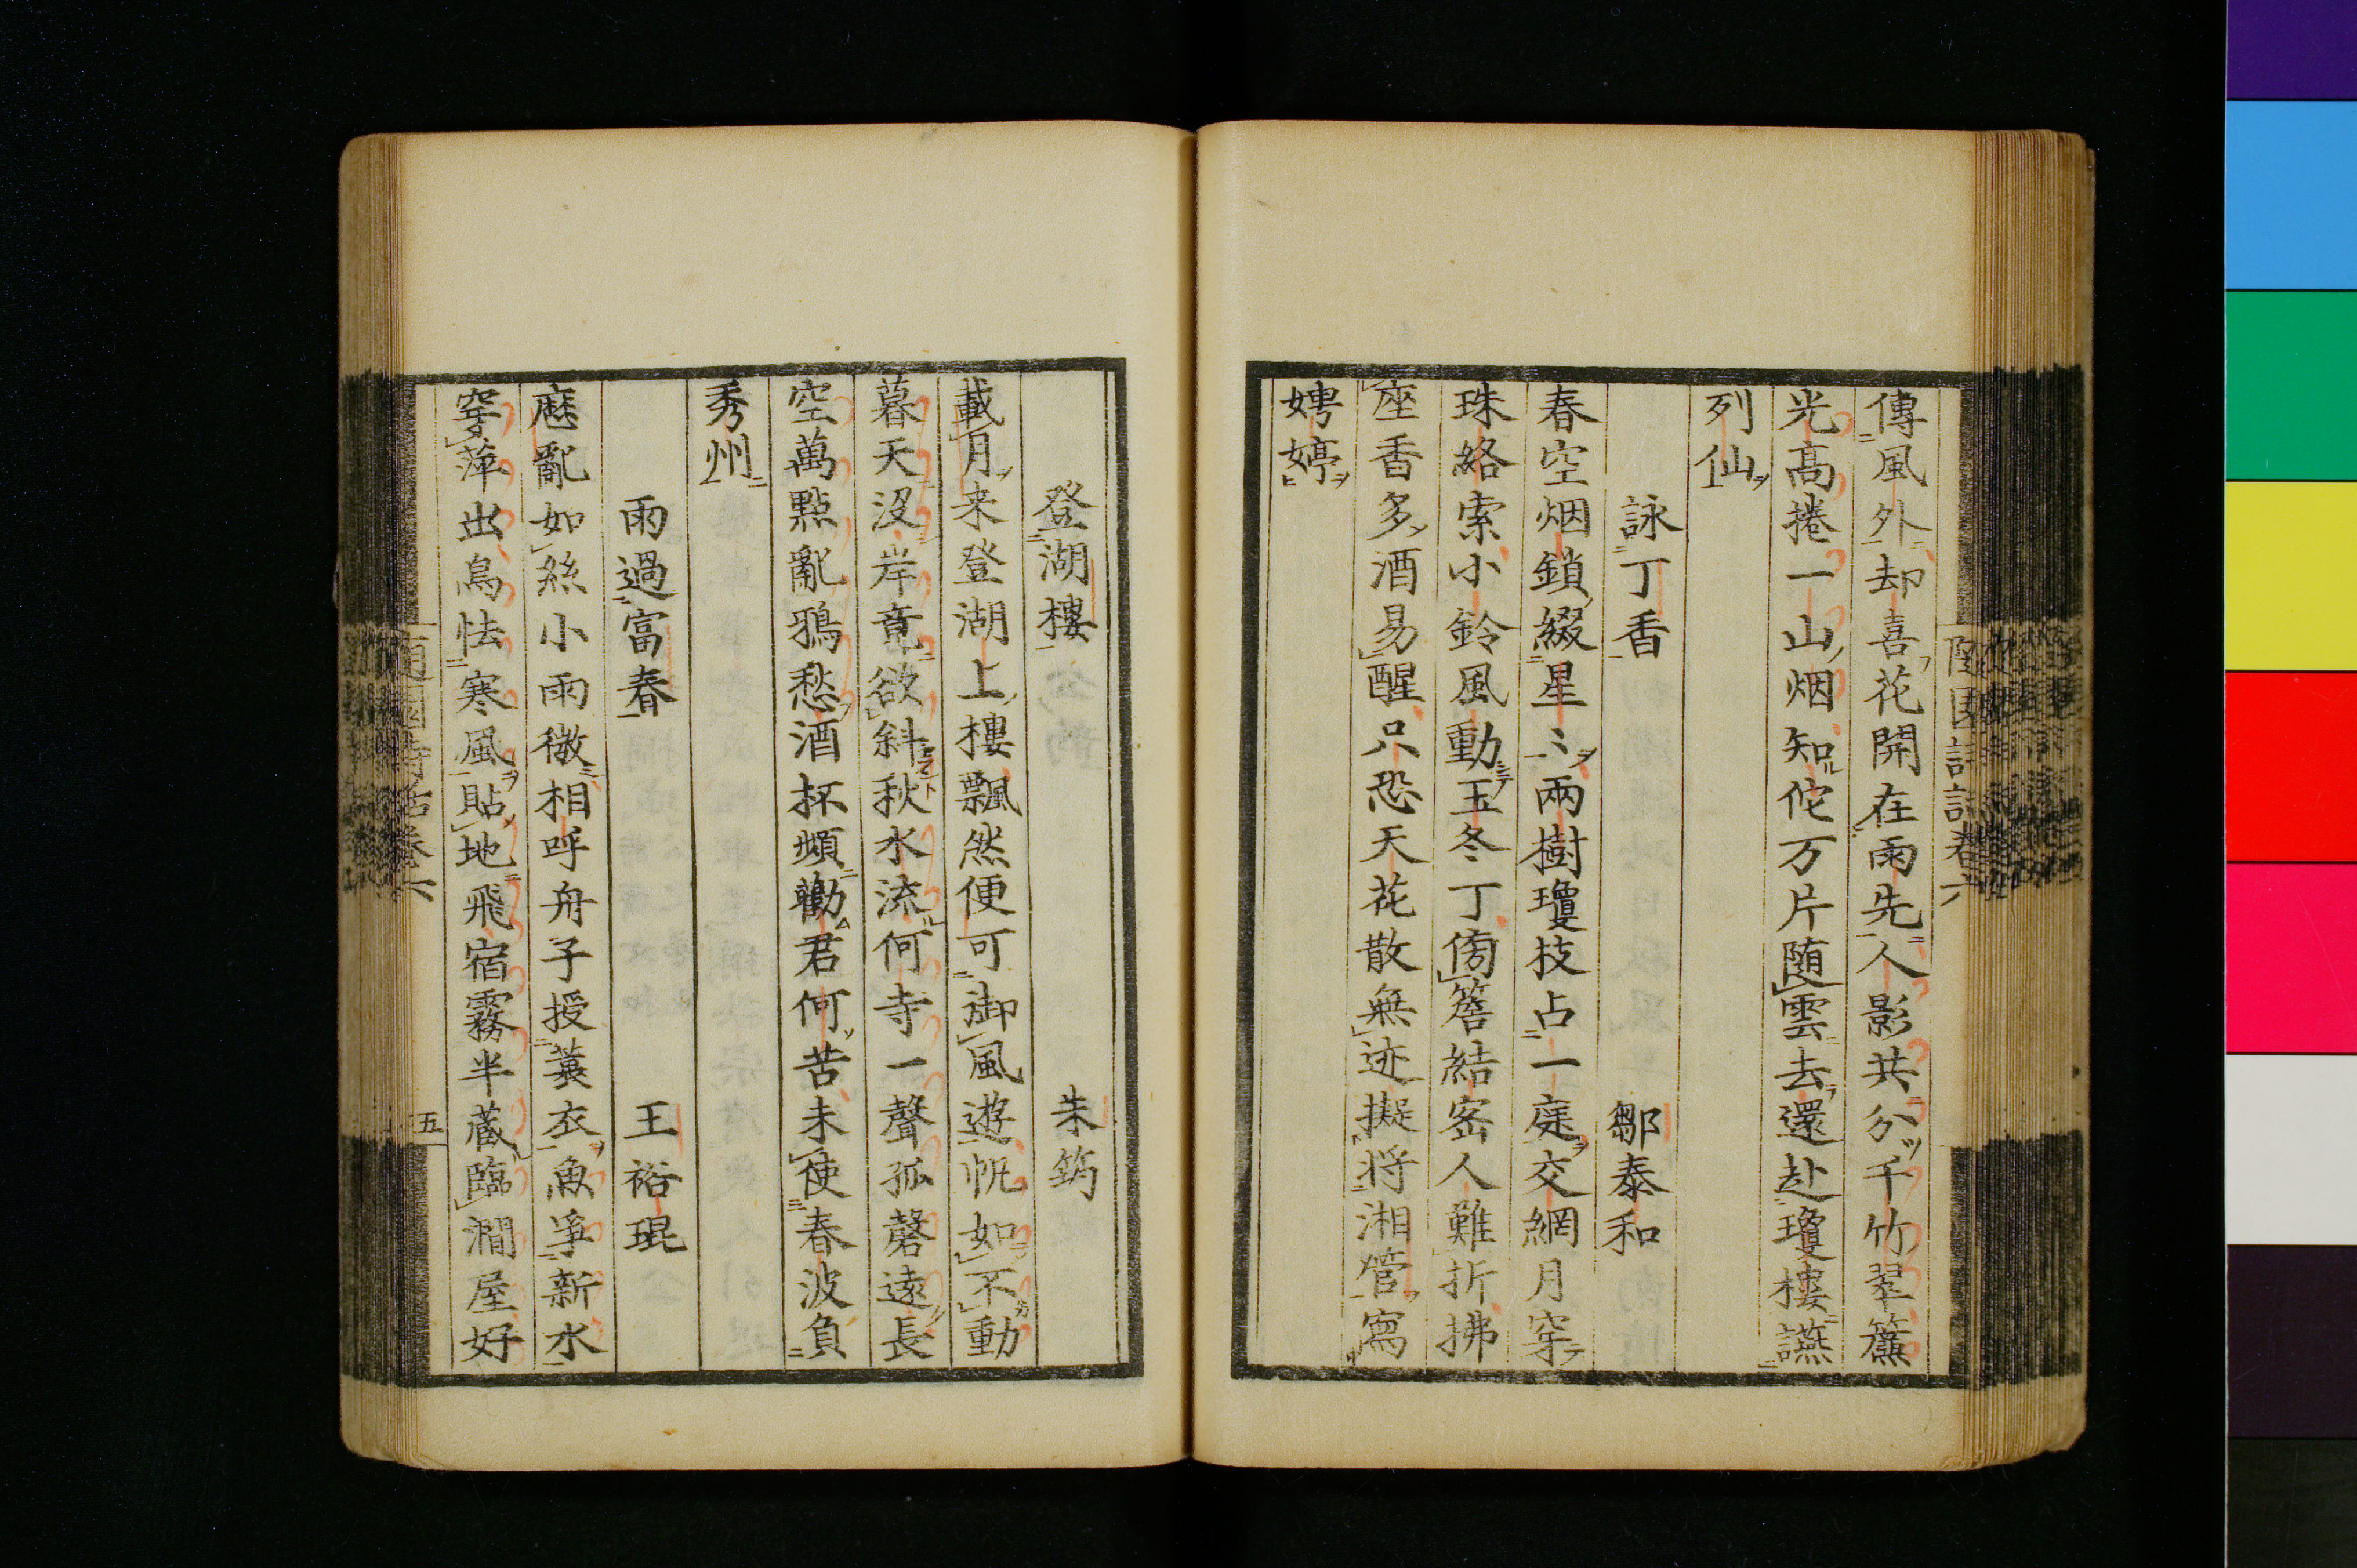 傳風外却喜花開在雨先人影共分千竹翠簾
光高捲一山烟知佗万片随雲去還赴瓊樓讌
列仙
詠丁香 鄒泰和
春空烟鎖綴星〻兩樹瓊枝占一庭交網月穿
珠絡索小鈴風動玉冬丁傍簷結密人難折拂
座香多酒易醒只恐天花散無迹擬将湘管寫
娉婷
登湖樓 朱筠
載月来登湖上樓飄然便可御風遊帆如不動
暮天沒岸竟欲斜秋水流何寺一聲孤磬遠長
空萬點亂鴉愁酒杯頻勸君何苦未使春波負
秀州
雨過富春 王裕琨
歷亂如絲小雨微相呼舟子授蓑衣魚爭新水
穿萍出鳥怯寒風貼地飛宿霧半蔵臨澗屋好
隨園詩話卷六
五